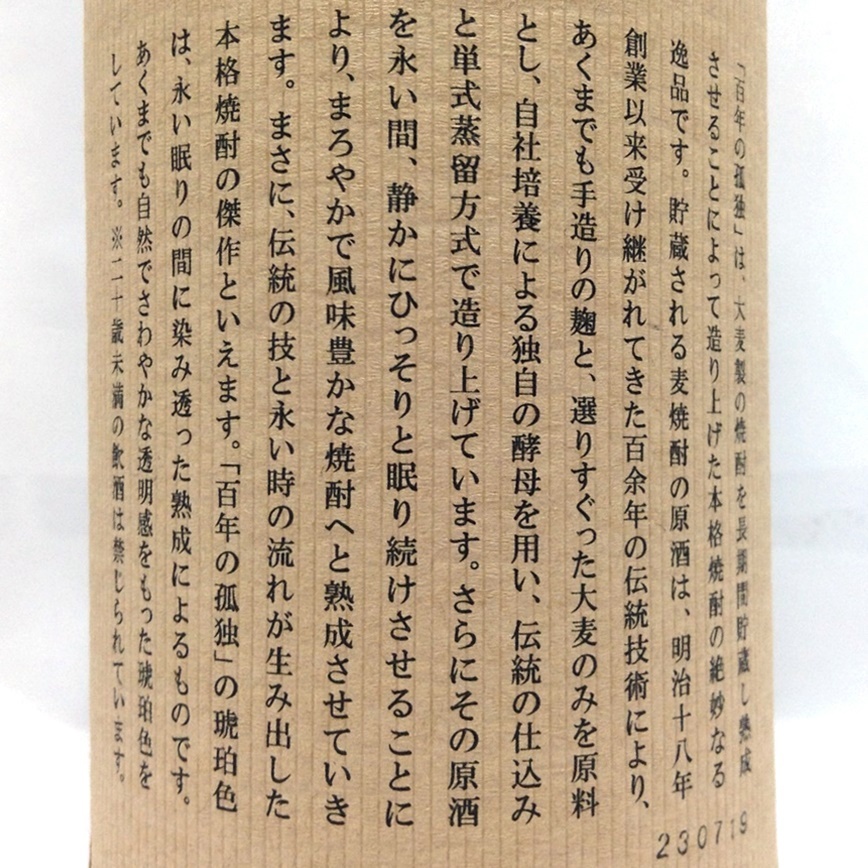 「百年の孤独」は、大麦製の焼酎を長期間貯蔵し熟成
させることによって造り上げた本格焼酎の絶妙なる
逸品です。貯蔵される麦焼酎の原酒は、明治十八年
創業以来受け継がれてきた百余年の伝統技術により、
あくまでも手造りの麹と、選りすぐった大麦のみを原料
とし、自社培養による独自の酵母を用い、伝統の仕込み
と単式蒸留方式で造り上げています。さらにその原酒
を永い間、静かにひっそりと眠り続けさせることに
より、まろやかで風味豊かな焼酎へと熟成させていき
ます。まさに、伝統の技と永い時の流れが生み出した
本格焼酎の傑作といえます。「百年の孤独」の琥珀色
は、永い眠りの間に染み透った熟成によるものです。
あくまでも自然でさわやかな透明感をもった琥珀色を
しています。※二十歳未満の飲酒は禁じられています。
230719